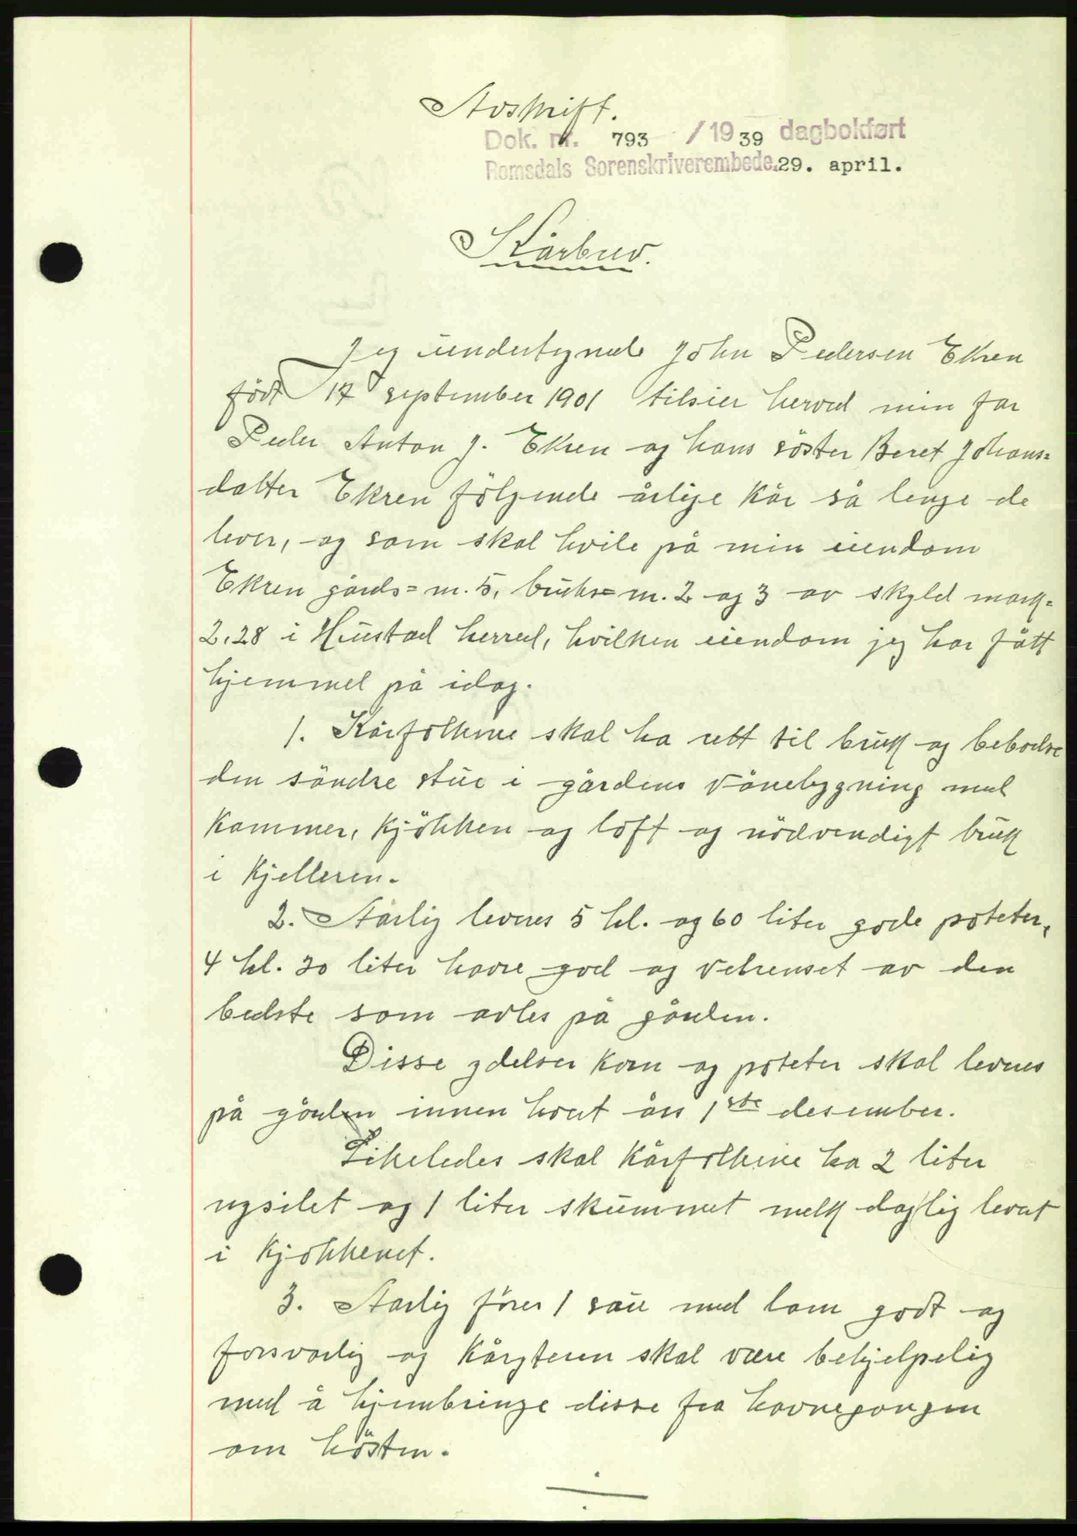 Avskrift.
Dok. nr. 793 / 1939 dagbokført
Romsdals Sorenskriverembede. 29. april.
Kårbrev.
Jeg undertegnede John Pedersen Ekren
født 17 september 1901 tilsier herved min far
Peder Anton J. Ekren og hans søster Beret Johans=
datter Ekren følgende årlige kår så lenge de
lever, og som skal hvile på min eiendom
Ekren gårds=nr. 5, bruks=nr. 2 og 3 av skyld mark=
2.28 i Hustad herred, hvilken eiendom jeg har fått
hjemmel på idag.
1. Kårfolkene skal ha rett til bruk og beboelse
den söndre stue i gårdens vånebygning med
kammer, kjökken og loft og nödvendigt bruk
i kjelleren.
2. Årlig leveres 5 hl. og 60 liter gode poteter,
4 hl. 20 liter havre god og velrenset av den
bedste som avles på gården.
Disse ydelser korn og poteter skal leveres
på gården innen hvert års 1ste desember.
Likeledes skal kårfolkene ha 2 liter
nysilet og 1 liter skummet melk daglig levert
i kjökkenet.
3. Årlig föres 1 sau med lam godt og
forsvarlig og kåryteren skal være behjelpelig
med å hjembringe disse fra havnegangen
om hösten.